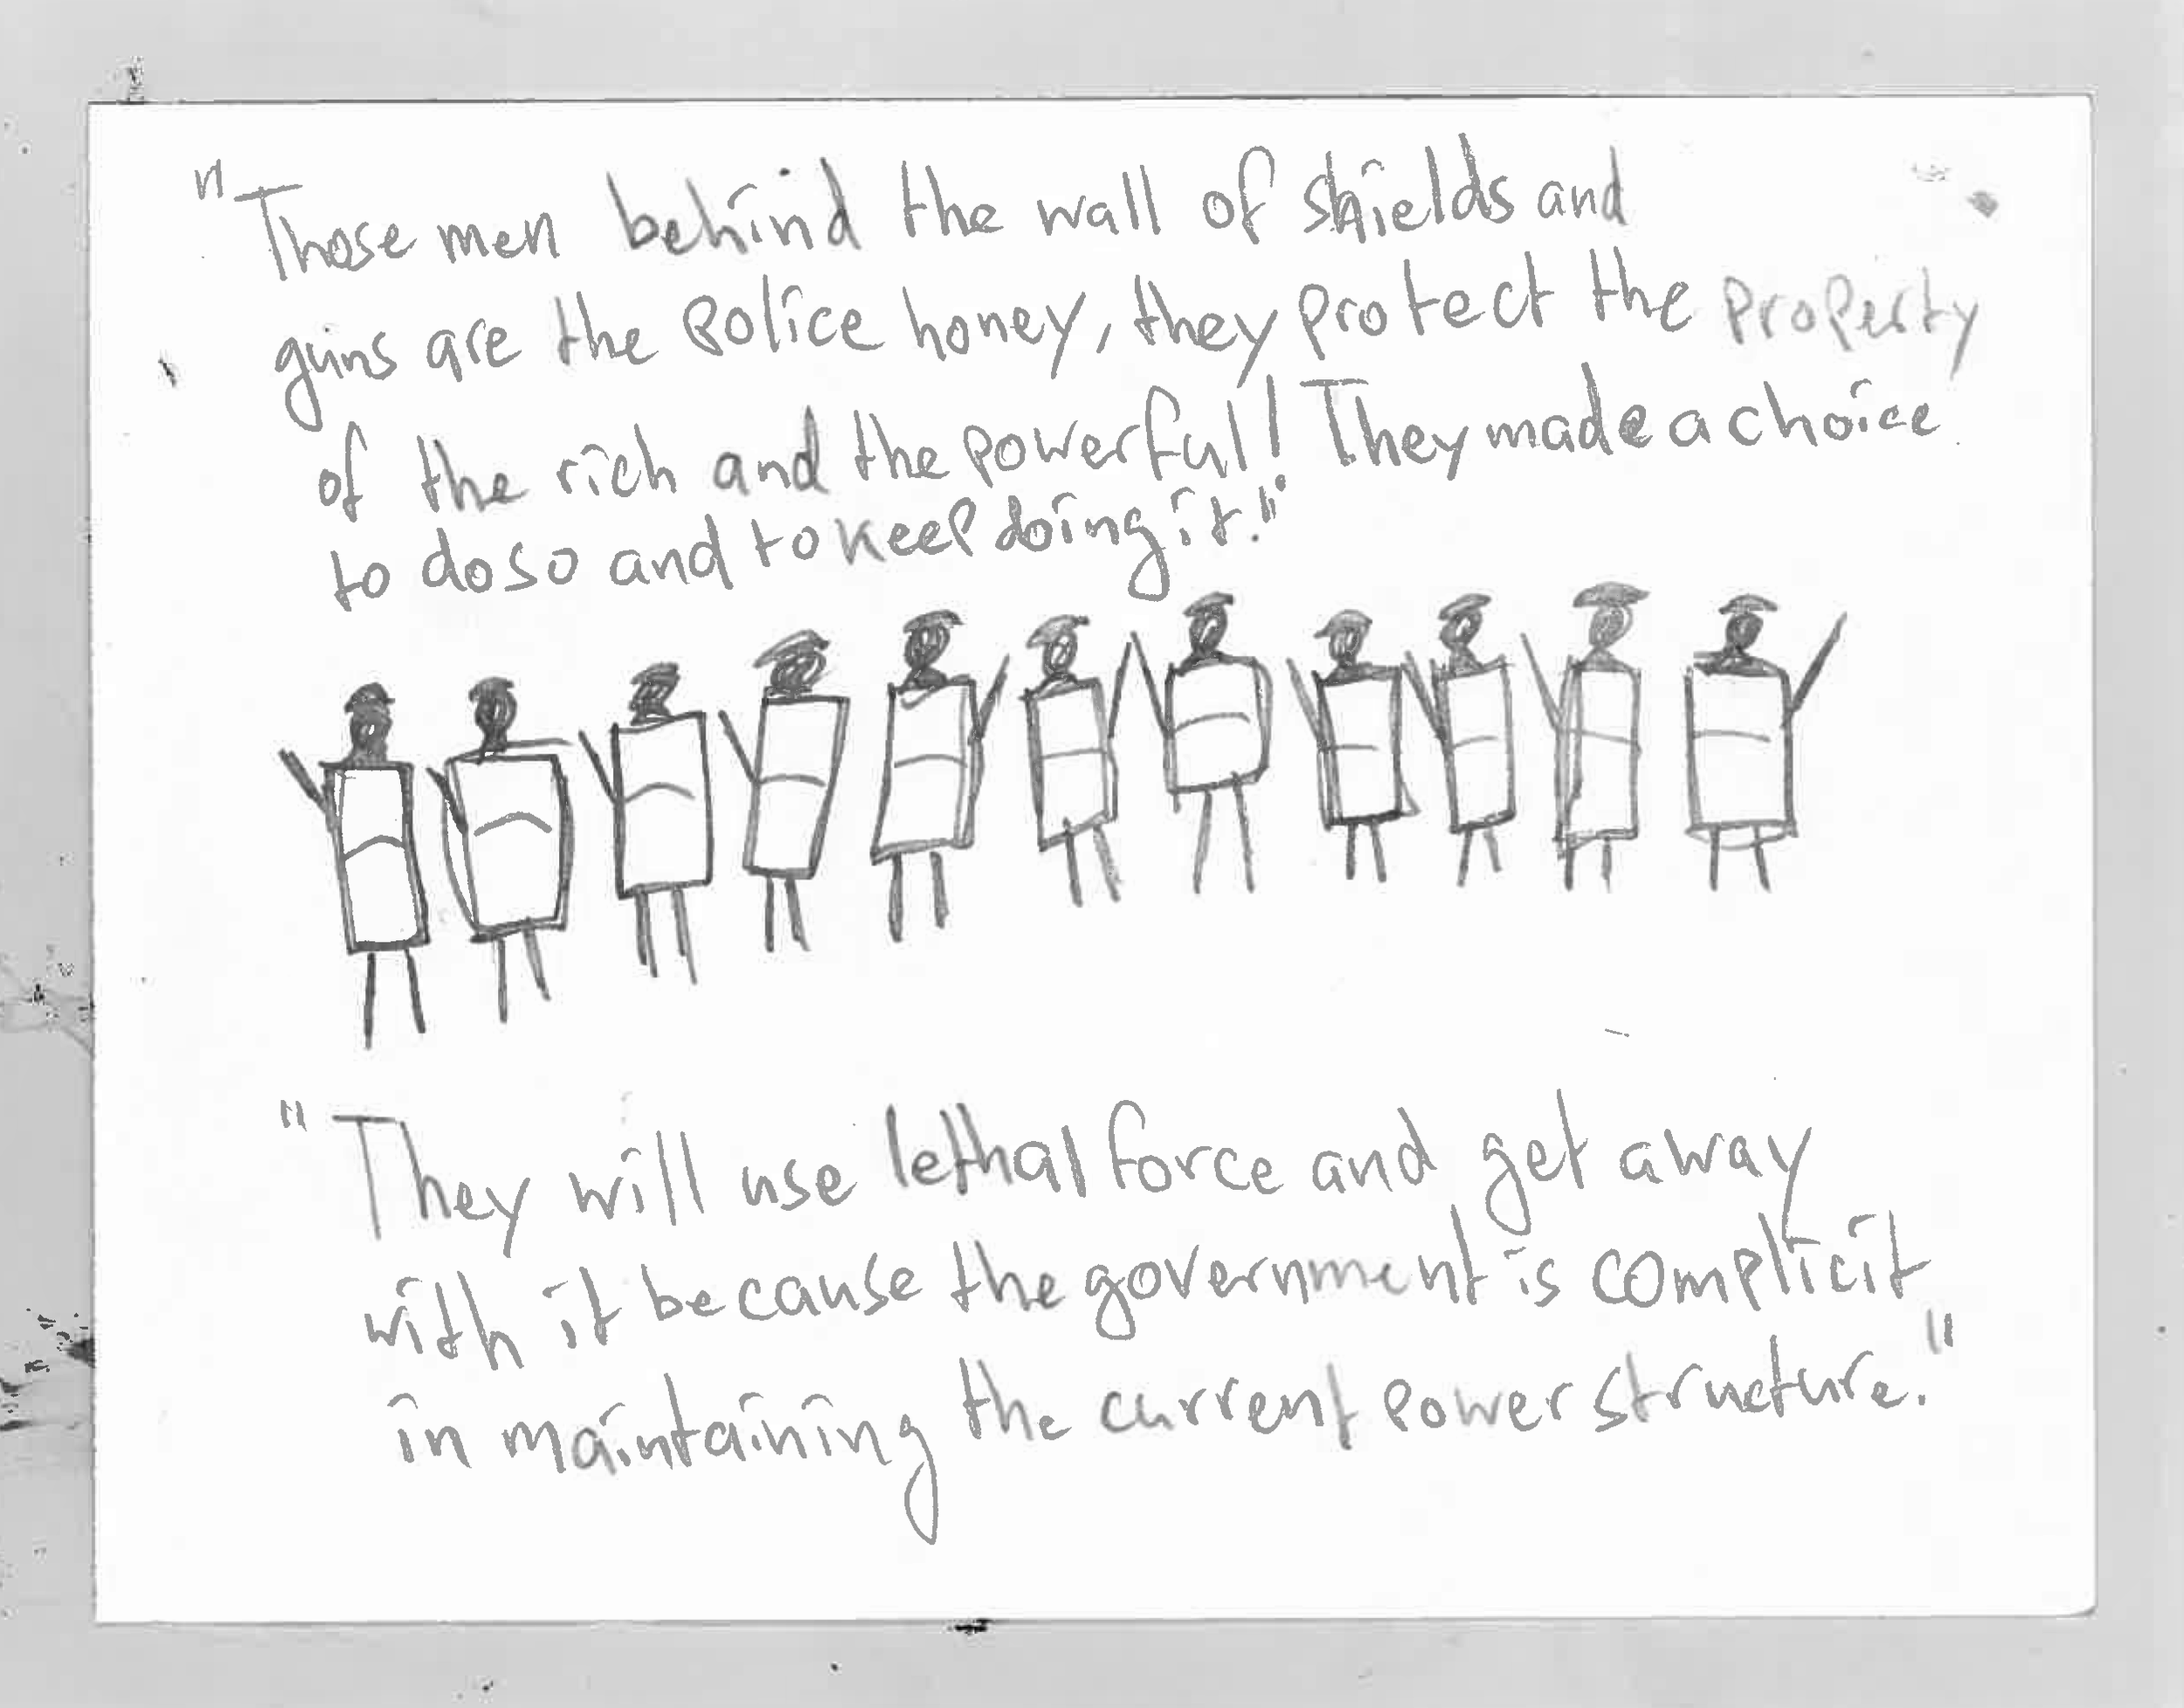 "Those men behind the wall of shields and
guns are the police honey, they protect the property
of the rich and the powerful! They made a choice
to do so and to keep doing it."
"They will use lethal force and get away
with it because the government is complicit
in maintaining the current power structure."